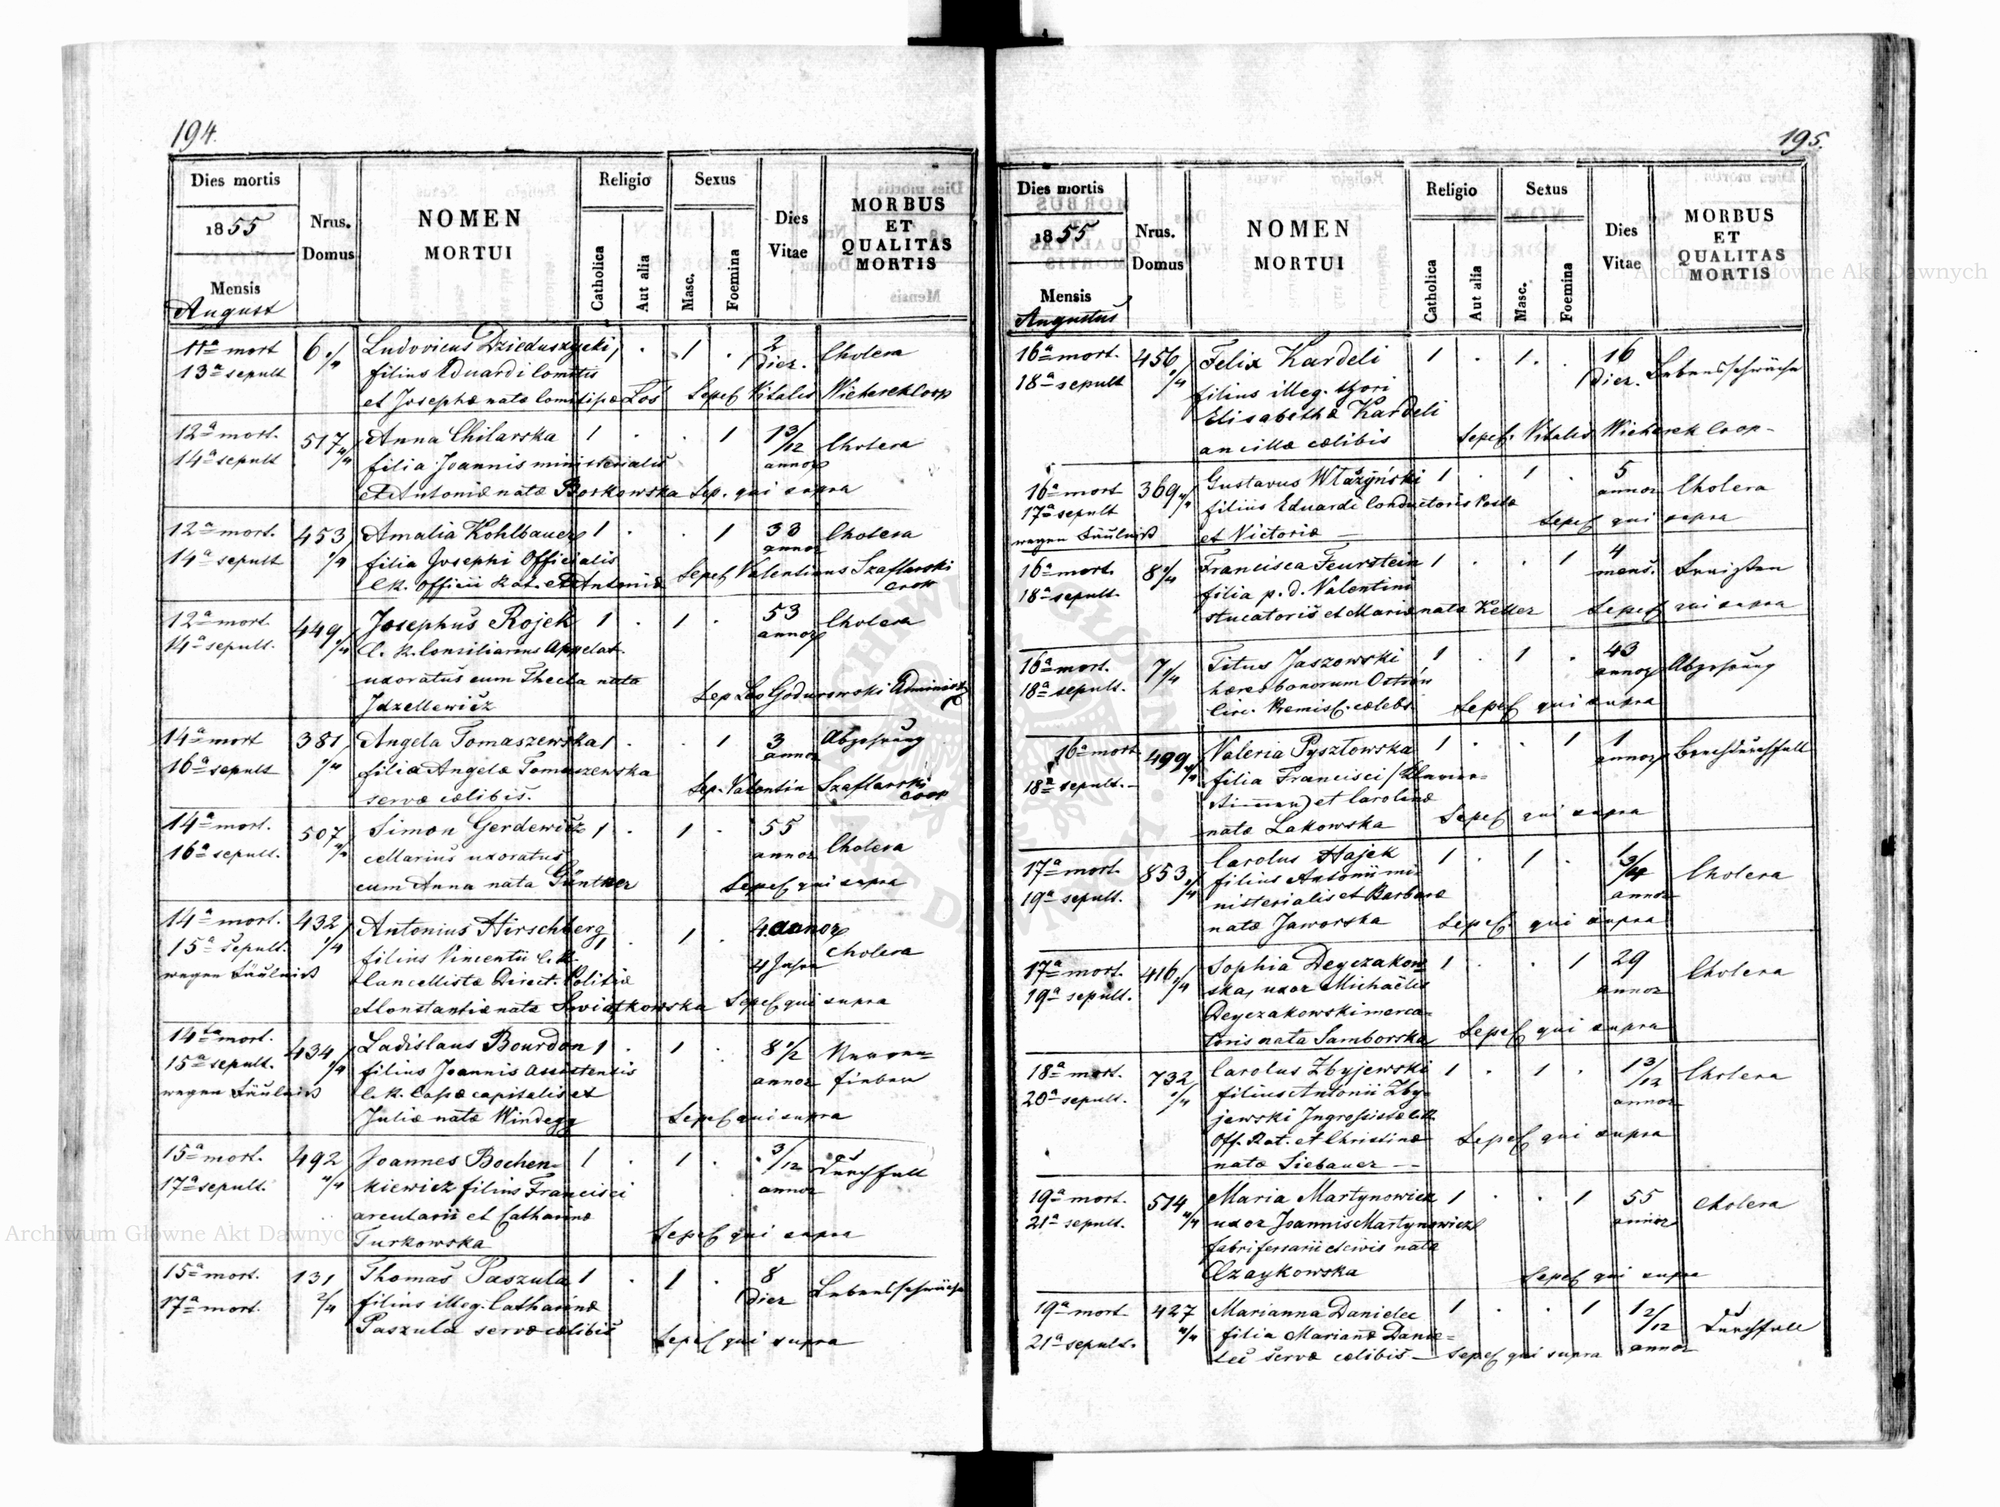 194.
Dies mortis
1855
Mensis
August
Nrus.
Domus
NOMEN
MORTUI
Religio
Catholica
Aut alia
Sexus
Masc.
Foemina
Dies
Vitae
MORBUS
ET
QUALITAS
MORTIS
11a mort
13a sepult
6 1/4
Ludovicus Dzieduszycki,
filius Eduardi Comitis
et Josephæ nata Comitissæ Łoś
1
2
dier.
Cholera
Sepel Vitalis Wicherek Coop
12a mort.
14a sepult
517 4/4
Anna Chilarska
filia Joannis ministerialis
et Antoniæ nata Borkowska Sep. qui supra
1 1
1 3/12
annor
Cholera
12a mort.
14a sepult
453
1/4
Amalia Kohlbauer
filia Josephi Officialis
C.K. Officii Rat. et Antoniæ
1 1
33
annor
Cholera
Sepel Valentinus Szaflarski
Coop
12a mort.
14a sepult.
449
Josephus Rojek
C. K. Consiliarius Appelat.
uxoratus cum Thecla nata
Jdzellewicz
1 1
53
annor
Cholera
Sep Leo Godurowski Administr
14a mort
16a sepult
381
Angela Tomaszewska
filia Angelæ Tomaszewska
servæ cælibis.
1 1
3
annor
Abzehrung
Sep. Valentin Szaflarski
Coop
14a mort.
16a sepult.
507
Simon Gerdewicz
cellarius uxoratus
cum Anna nata Güntner
1 1
55
annor
Cholera
Sepel qui supra
14a mort.
15a sepult.
wegen Fäulniß
432
1/4
Antonius Hirschberg
filius Vincentii C.K.
Cancellistæ Direct. Politiæ
et Constantiæ nata Swiątkowska
1 1
4 annor
4 Jahre
Cholera
Sepel qui supra
14ta mort.
15a sepult.
wegen Fäulniß
434
Ladislaus Bourdon
filius Joannis Assistentis
C.K. Cassæ capitalis et
Juliæ nata Windegg
1 1
8 1/2
annor
Nerven=
fieber
Sepel qui supra
15a mort.
17a sepult.
492
4/4
Joannes Bochen=
kiewicz filius Francisci
arcularii et Catharinæ
Turkowska
1 1
3/12
annor
Durchfall
Sepel qui supra
15a mort.
17a mort.
131
2/4
Thomas Paszula
filius illeg. Catharinæ
Paszula servæ cælibis
1 1
8
dier
Lebensschwäche
Sepel qui supra
195.
Dies mortis
1855
Mensis
Augustus
Nrus.
Domus
NOMEN
MORTUI
Religio
Catholica
Aut alia
Sexus
Masc.
Foemina
Dies
Vitae
MORBUS
ET
QUALITAS
MORTIS
16a mort.
18a sepult
456
Felix Kardeli
filius illeg. thori
Elisabethæ Kardeli
ancillæ cælibis
1 1
16
dier.
Lebensschwäche
Sepel. Vitalis Wicherek Coop-
16a mort
17a sepult
wegen Fäulniß
369
Gustavus Wlażyński
filius Eduardi Conductoris Postæ
et Victoriæ —
1 1
5
annor
Cholera
Sepel qui supra
16a mort.
18a sepult.
8 1/4
Francisca Feurstein
filia p. d. Valentini
stucatoris et Mariæ nata Keller
1 1
4
mens.
Fraißen
Sepel qui supra
16a mort.
18a sepult.
7 1/4
Titus Jaszowski
hæres bonorum Ostrów
Circ. Premisl. cælebs.
1 1
43
annor
Abzehrung
Sepel qui supra
16a mort
18a sepult.-
499
Valeria Pysztowska
filia Francisci (Klavier=
stimmer) et Carolinæ
nata Lakowska
1 1
1
annor
Brechdurchfall
Sepel qui supra
17a mort.
19a sepult.
853
Carolus Hajek
filius Antonii mi=
nisterialis et Barbaræ
nata Jaworska
1 1
1 3/4
annor
Cholera
Sepel. qui supra
17a mort.
19a sepult.
416
Sophia Deyczakow=
ska, uxor Michaëlis
Deyczakowski merca=
toris nata Samborska
1 1
29
annor
Cholera
Sepel qui supra
18a mort.
20a sepult.
732
Carolus Zbyjewski
filius Antonii Zby=
jewski Ingrossistæ C.K.
Off. Rat. et Christinæ
nata Siebauer —
1 1
1 3/12
annor
Cholera
Sepel qui supra
19a mort.
21a sepult.
514
4/4
Maria Martynowicz
uxor Joannis Martynowicz
fabri ferrarii et civis nata
Czaykowska
1 1
55
annor
Cholera
Sepel qui supra
19a mort
21a sepult.
427
4/4
Marianna Danielec
filia Marianæ Danie=
lec servæ cælibis — Sepel qui supra
1 1
1 2/12
annor
Durchfall
Archiwum Główne Akt Dawnych
Archiwum Główne Akt Dawnych
ARCHIWUM GŁÓWNE AKT DAWNYCH